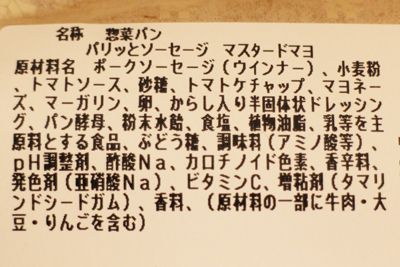 名称 惣菜パン
パリッとソーセージ マスタードマヨ
原材料名 ポークソーセージ（ウインナー）、小麦粉
、トマトソース、砂糖、トマトケチャップ、マヨネー
ズ、マーガリン、卵、からし入り半固体状ドレッシン
グ、パン酵母、粉末水飴、食塩、植物油脂、乳等を主
原料とする食品、ぶどう糖、調味料（アミノ酸等）、
pH調整剤、酢酸Na、カロチノイド色素、香辛料、
発色剤（亜硝酸Na）、ビタミンC、増粘剤（タマリ
ンドシードガム）、香料、（原材料の一部に牛肉・大
豆・りんごを含む）